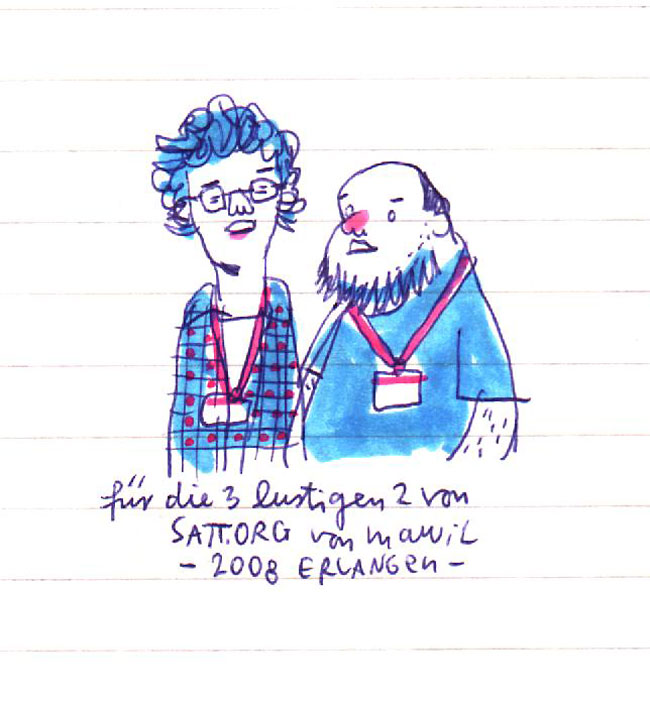 für die 3 lustigen 2 von
SATT.ORG von mawil
- 2008 ERLANGEN -